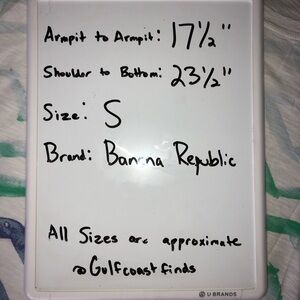 Armpit to Armpit: 17½"
Shoulder to Bottom: 23½"
Size: S
Brand: Banana Republic
All Sizes are approximate
@Gulfcoastfinds
U BRANDS